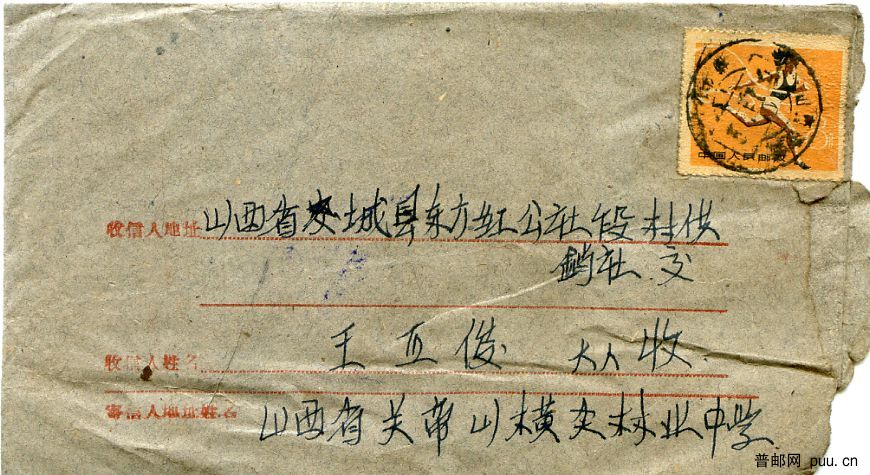 中国人民邮政
收信人地址 山西省交城县东方红公社段村供
销社 交
收信人姓名 王亙俊 大人 收
寄信人地址姓名 山西省关帝山横尖林业中学
普邮网 puu.cn